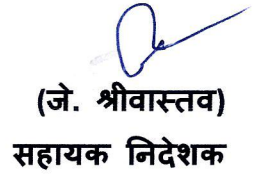 (जे. श्रीवास्तव)
सहायक निदेशक